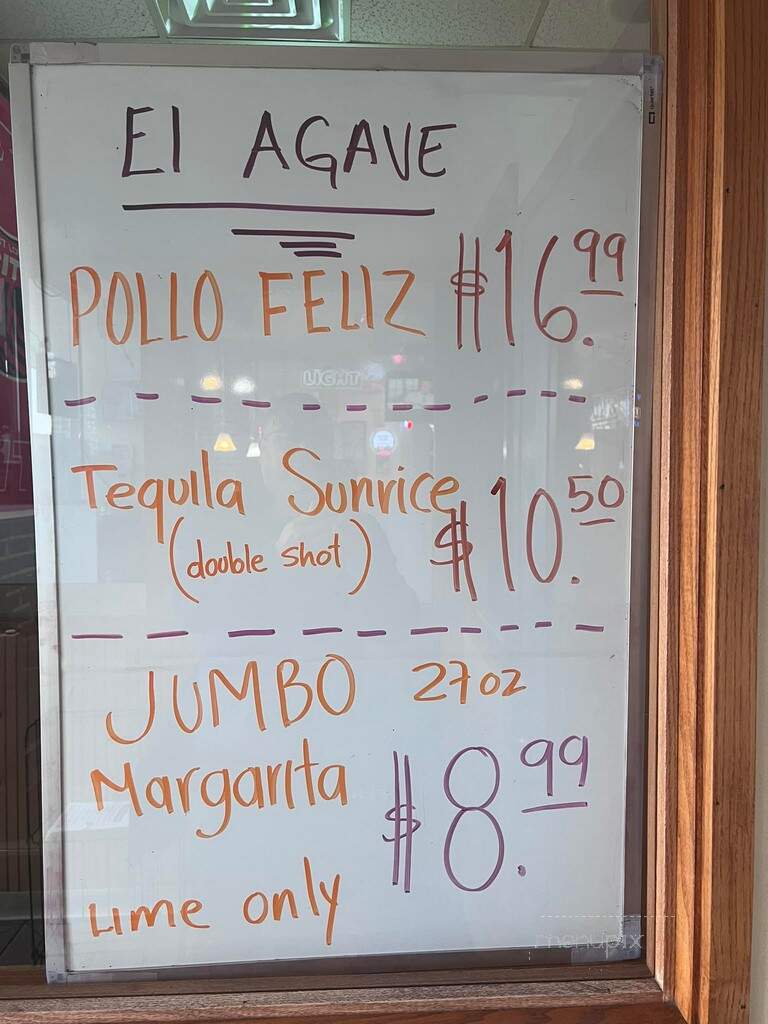 El AGAVE
POLLO FELIZ $16.99
Tequila Sunrice
(double shot) $10.50
JUMBO 27oz
Margarita $8.99
Lime only
LIGHT
menupix